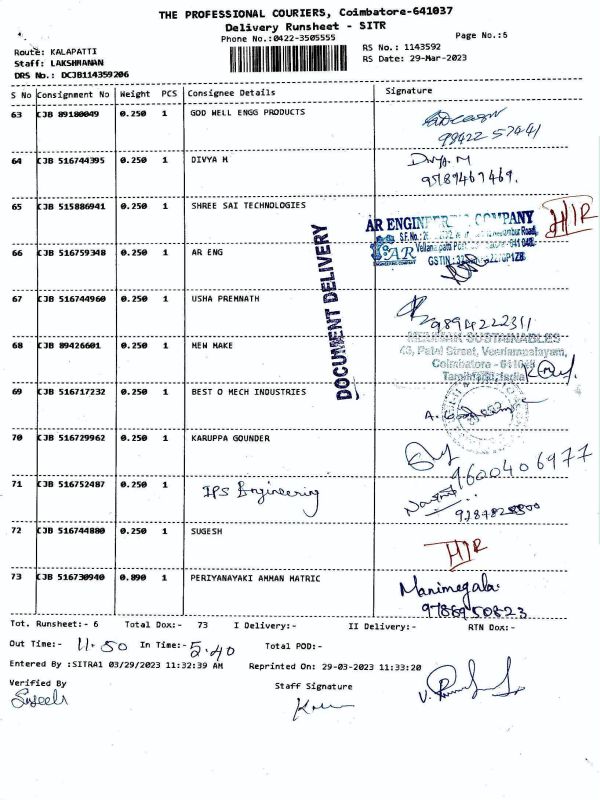 THE PROFESSIONAL COURIERS, Coimbatore-641037
Delivery Runsheet - SITR
Phone No.:0422-3505555
Page No.:6
Route: KALAPATTI
Staff: LAKSHMANAN
DRS No.: DCJB114359206
RS No.: 1143592
RS Date: 29-Mar-2023
S No Consignment No Weight PCS Consignee Details Signature
63 CJB 89180049 0.250 1 GOD WELL ENGG PRODUCTS
99422 57441
64 CJB 516744395 0.250 1 DIVYA M Divya. M
9789467469.
65 CJB 515886941 0.250 1 SHREE SAI TECHNOLOGIES
AR ENGINEERING COMPANY
H/R
66 CJB 516759348 0.250 1 AR ENG
AR
GSTIN :
DOCUMENT DELIVERY
67 CJB 516744960 0.250 1 USHA PREMNATH
9894222311
68 CJB 89426601 0.250 1 NEW MAKE
SUSTAINABLES
43, Patel Street, Veeriampalayam,
Coimbatore - 641048
Tamilnadu, India
69 CJB 516717232 0.250 1 BEST O MECH INDUSTRIES
70 CJB 516729962 0.250 1 KARUPPA GOUNDER
9600406977
71 CJB 516752487 0.250 1 IPS Engineering
72 CJB 516744880 0.250 1 SUGESH H/R
73 CJB 516730940 0.890 1 PERIYANAYAKI AMMAN MATRIC Manimegala.
9786950823
Tot. Runsheet:- 6 Total Dox:- 73 I Delivery:- II Delivery:- RTN Dox:-
Out Time:- 11.50 In Time:- 5.40 Total POD:-
Entered By :SITRA1 03/29/2023 11:32:39 AM Reprinted On: 29-03-2023 11:33:20
Verified By
Staff Signature